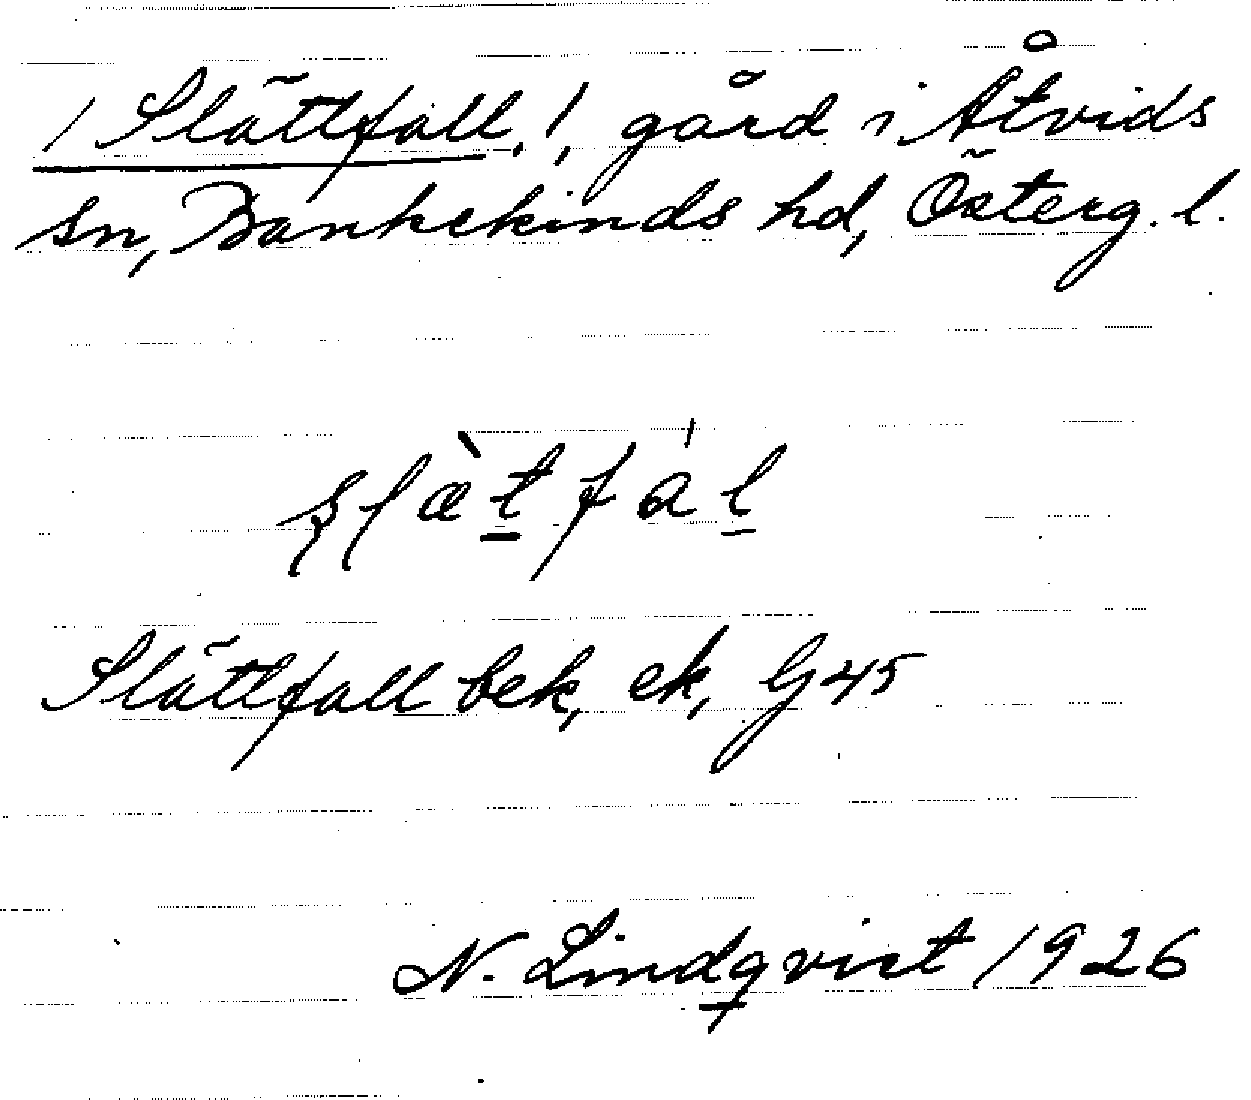 / Slättfall, /, gård i Åtvids
sn, Bankekinds hd, Österg. l.
Slättfall bek, ek, G45
N. Lindqvist 1926